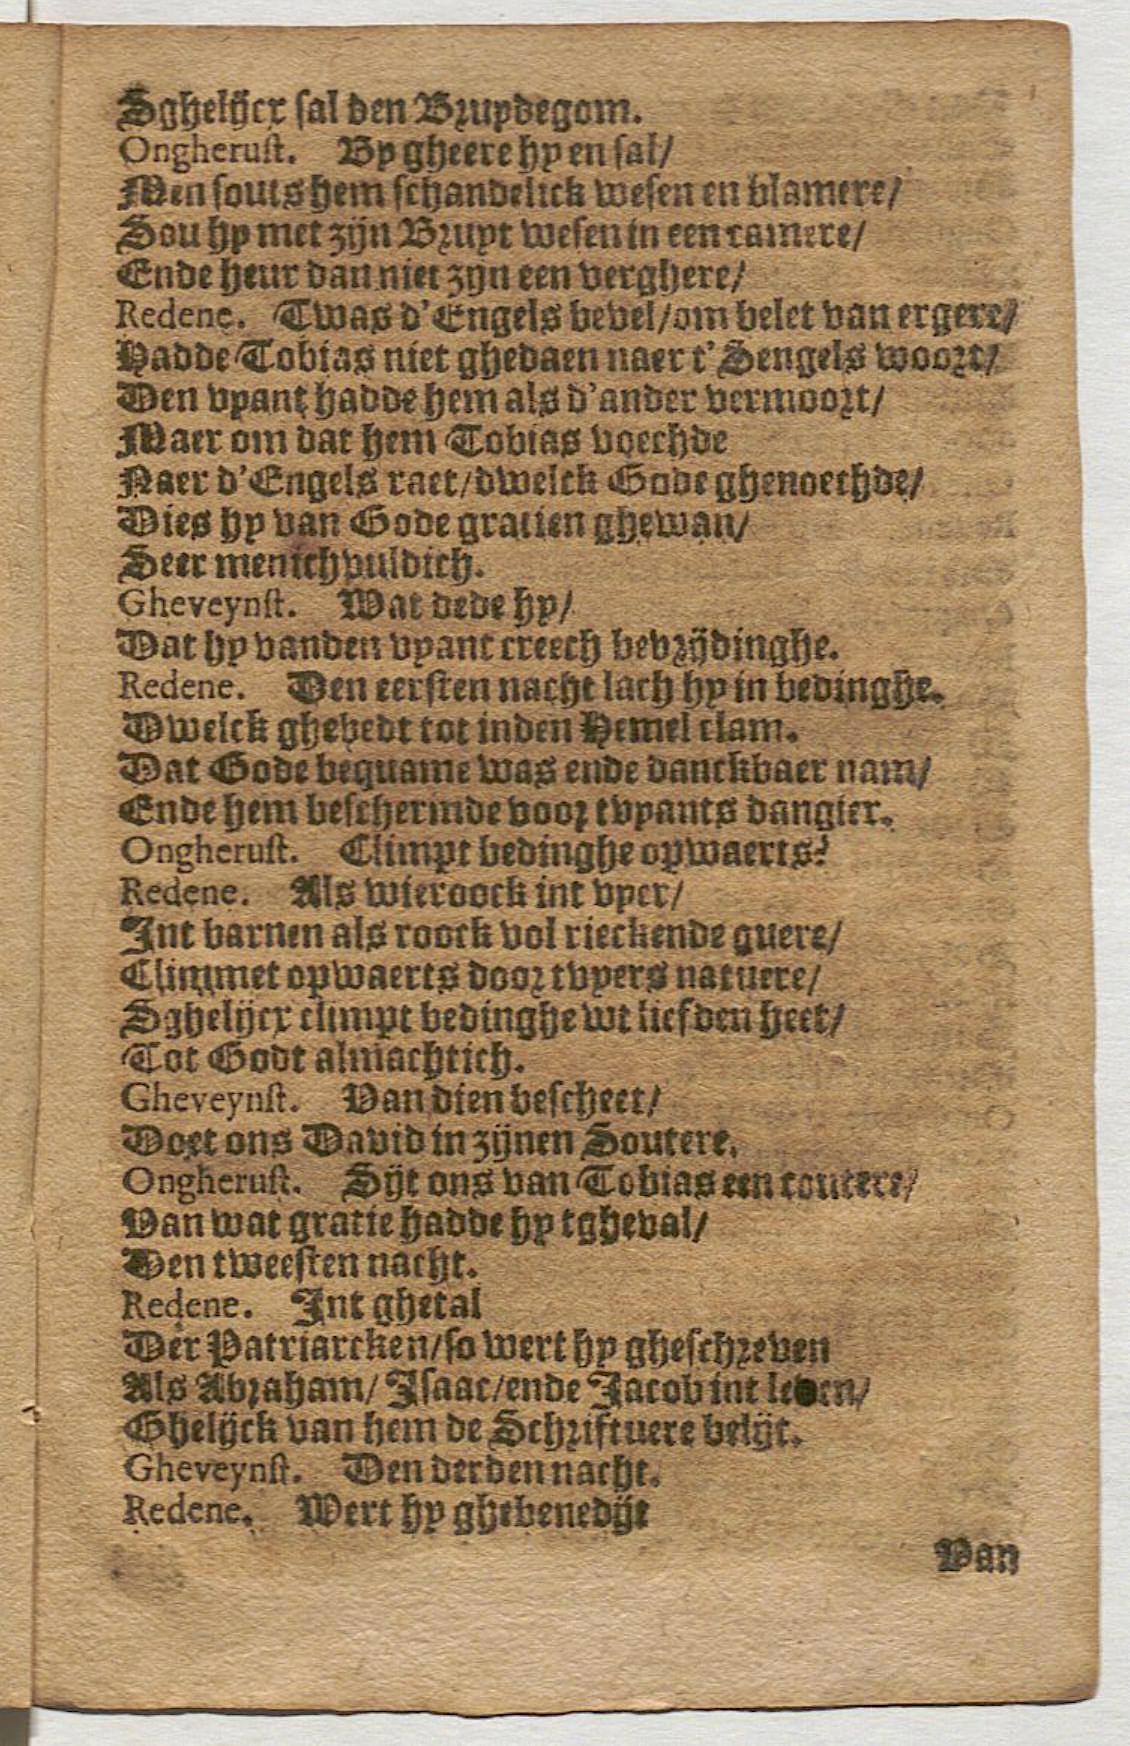 Sghelijcx sal den Bruydegom.
Ongherust. By gheere hy en sal/
Men souts hem schandelick wesen en blamere/
Sou hy met zijn Bruyt wesen in een camere/
Ende heur dan niet zyn een verghere/
Redene. Twas d'Engels bevel/om belet van ergere/
Hadde Tobias niet ghedaen naer t'Sengels woort/
Den vyant hadde hem als d'ander vermoort/
Maer om dat hem Tobias voechde
Naer d'Engels raet/dwelck Gode ghenoechde/
Dies hy van Gode gratien ghewan/
Seer menichvuldich.
Gheveynst. Wat dede hy/
Dat hy vanden vyant creech bevrijdinghe.
Redene. Den eersten nacht lach hy in bedinghe.
Dwelck ghebedt tot inden Hemel clam.
Dat Gode bequame was ende danckbaer nam/
Ende hem beschermde voor tvyants dangier.
Ongherust. Climpt bedinghe opwaerts?
Redene. Als wieroock int vyer/
Int barnen als roock vol rieckende guere/
Climmet opwaerts door tvyers natuere/
Sghelijcx climpt bedinghe wt liefden heet/
Tot Godt almachtich.
Gheveynst. Van dien bescheet/
Doet ons David in zijnen Soutere.
Ongherust. Sijt ons van Tobias een coutere/
Van wat gratie hadde hy tgheval/
Den tweesten nacht.
Redene. Int ghetal
Der Patriarcken/so wert hy gheschreven
Als Abraham/Isaac/ende Jacob int leven/
Ghelijck van hem de Schriftuere belijt.
Gheveynst. Den derden nacht.
Redene. Wert hy ghebenedijt
Van